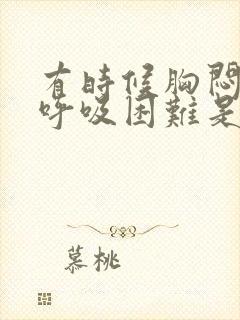 有時候胸悶
呼吸困難是
慕桃